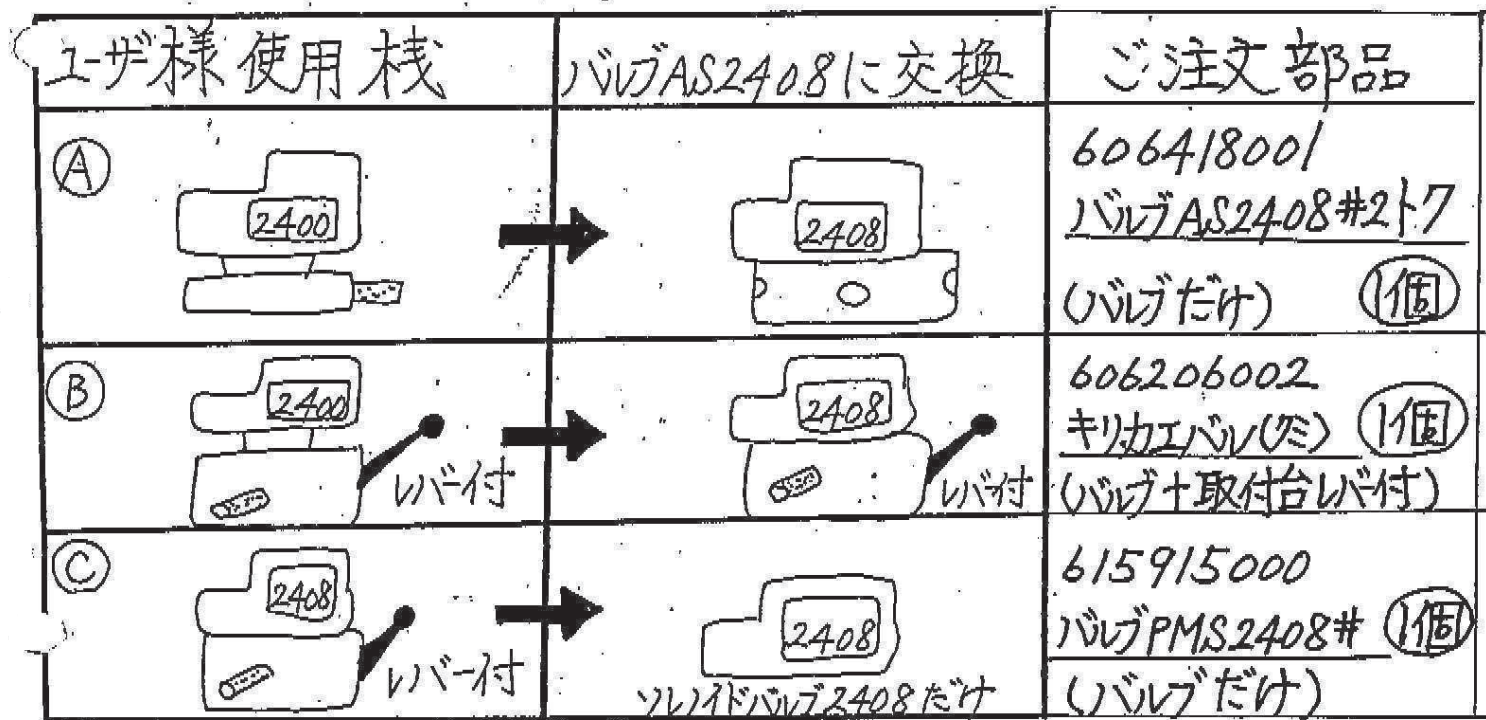 ユーザ様使用桟
バルブAS2408に交換
ご注文部品
A
2400
2408
606418001
バルブAS2408#2トク
(バルブだけ)
1個
B
2400
レバー付
2408
レバー付
606206002
キリカエバル(クミ)
1個
(バルブ+取付台レバー付)
C
2408
レバー付
2408
ソレノイドバルブ2408だけ
615915000
バルブPMS2408#
1個
(バルブだけ)